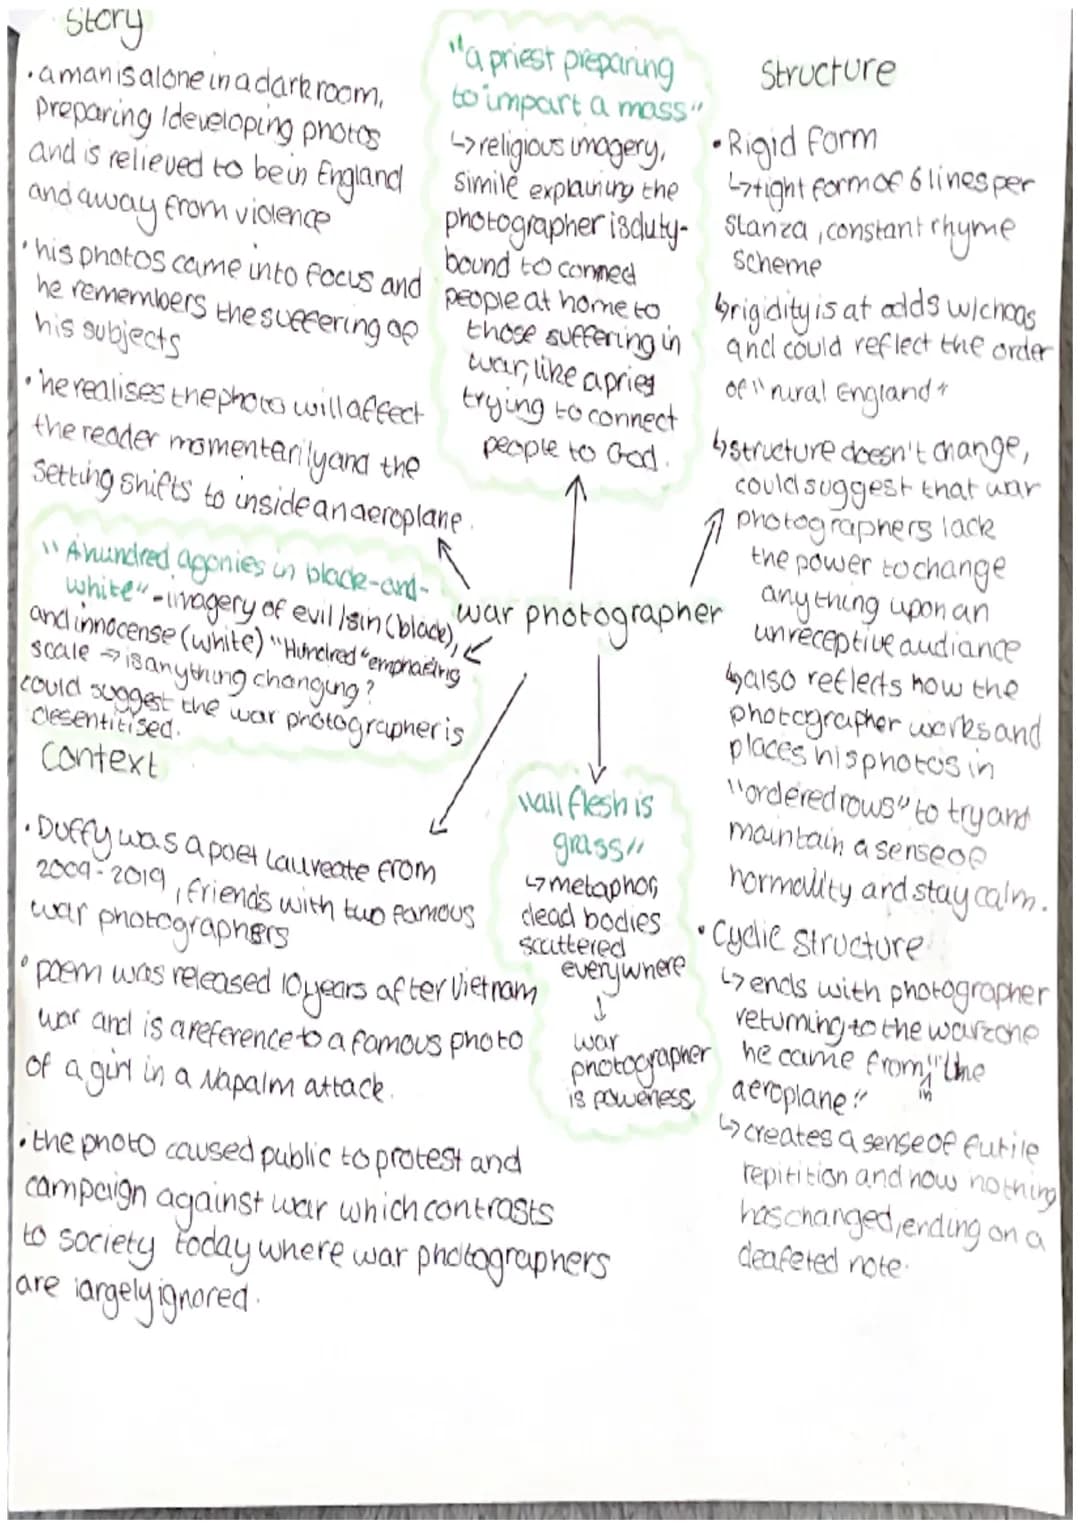 Story
• a man is alone in a dark room,
preparing / developing photos
and is relieved to be in England
and away from violence
• his photos came into focus and
he remembers the suffering of
his subjects
• he realises the photos will affect
the reader momentarily and the
setting shifts to inside an aeroplane.
"A hundred agonies in black-and-
white" - imagery of evil / sin (black),
and innocense (white) "Hundred" emphasing
scale → is anything changing?
could suggest the war photographer is
desentitised.
"a priest preparing
to impart a mass"
↳ religious imagery,
simile explaining the
photographer is duty-
bound to conned
people at home to
those suffering in
war, like a priest
trying to connect
people to God.
war photographer
"all flesh is
grass"
↳ metaphor,
dead bodies
scattered
everywhere
↓
war
photographer
is powerless
Context
• Duffy was a poet laureate from
2009-2019, friends with two famous
war photographers
• poem was released 10 years after Vietnam
war and is a reference to a famous photo
of a girl in a Napalm attack.
• the photo caused public to protest and
campaign against war which contrasts
to society today where war photographers
are largely ignored.
Structure
• Rigid form
↳ tight form of 6 lines per
stanza, constant rhyme
scheme
↳ rigidity is at odds w/ choas
and could reflect the order
of "rural England"
↳ structure doesn't change,
could suggest that war
photographers lack
the power to change
anything upon an
unreceptive audiance
↳ also reflects how the
photographer works and
places his photos in
"ordered rows" to try and
maintain a sense of
normality and stay calm.
• Cyclic structure
↳ ends with photographer
returning to the warzone
he came from, "in the
aeroplane"
↳ creates a sense of futile
repitition and how nothing
has changed, ending on a
deafeted note.